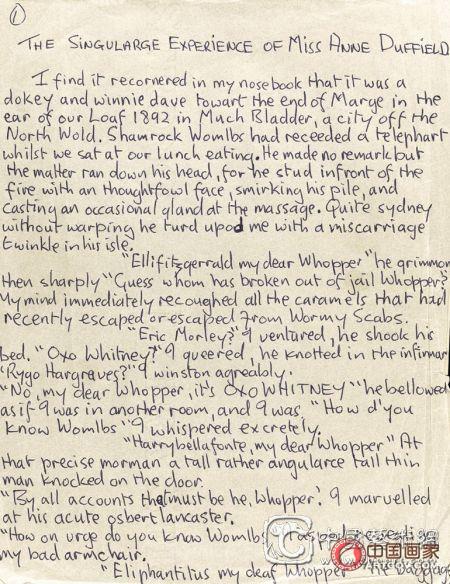 1
THE SINGULARGE EXPERIENCE OF MISS ANNE DUFFIELD
I find it recornered in my nosebook that it was a
dokey and winnie dave towart the end of Marge in the
ear of our Loaf 1892 in Much Bladder, a city off the
North Wold. Shamrock Womlbs had receeded a telephart
whilst we sat at our lunch eating. He made no remark but
the matter ran down his head, for he stud infront of the
fire with an thoughtfowl face, smirking his pile, and
casting an occasional gland at the massage. Quite sydney
without warping he turd upod me with a miscarriage
twinkle in his isle.
"Ellifitzgerrald my dear Whopper" he grimmon
then sharply "Guess whom has broken out of jail Whopper?
My mind immediately recoughed all the caramels that had
recently escaped or escaped from Wormy Scabs.
"Eric Morley?" I ventured, he shook his
bed. "Oxo Whitney?" I queered, he knotted in the infirmar
"Rygo Hargraves?" I winston agreably.
"No, my dear Whopper, it's OXO WHITNEY" he bellowed
as if I was in another room, and I was. "How d'you
know Womlbs" I whispered excretely.
"Harrybellafonte, my dear Whopper" At
that precise morman a tall rather angularce tall thin
man knocked on the door.
"By all accounts that must be he, Whopper." I marvelled
at his acute osbert lancaster.
"How on urge do you know Womlbs"
my bad armchair.
"Eliphantitus my deaf Whopper" he
中国画家